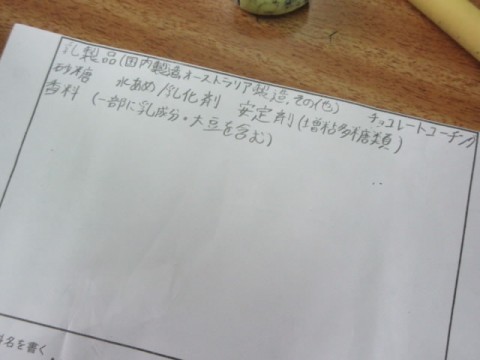 乳製品(国内製造オーストラリア製造,その他) チョコレートコーチング
砂糖 水あめ/乳化剤 安定剤(増粘多糖類)
香料 (一部に乳成分・大豆を含む)
名を書く